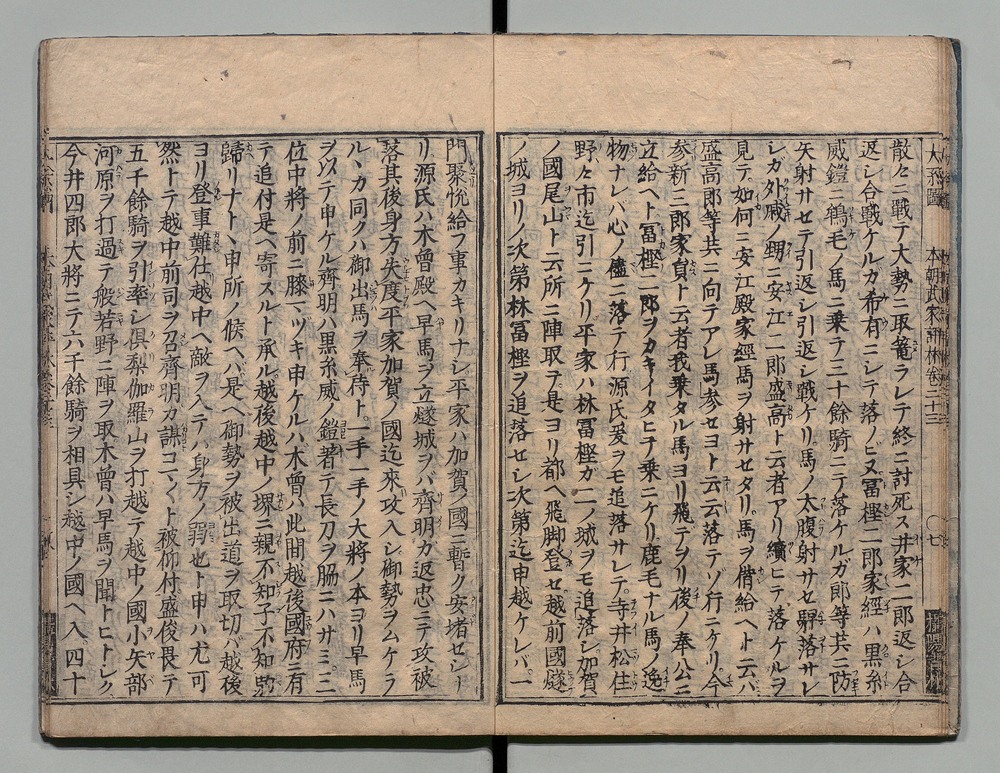 散々ニ戰テ大勢ニ取篭ラレテ終ニ討死ス井家二郎返シ合
返シ合戰ケルカ希有ニシテ落ノビヌ冨樫二郎家經ハ黒糸
威鎧ニ鴾毛ノ馬ニ乗テ三十餘騎ニテ落ケルガ郎等共ニ防
矢射サセテ引返シ引返シ戰ケリ馬ノ太腹射サセ駻落サレ
レガ外戚ノ甥ニ安江二郎盛高ト云者アリ續ヒテ落ケルヲ
見テ如何ニ安江殿家經馬ヲ射サセタリ馬ヲ借給ヘト云バ
盛高郎等共ニ向テアレ馬参セヨト云云落テゾ行ニケリ今
参新三郎家負ト云者我乗タル馬ヨリ飛テヲリ後ノ奉公ニ
立給ヘト冨樫二郎ヲカキイタヒテ乗ニケリ鹿毛ナル馬ノ逸
物ナレバ心ノ儘ニ落テ行源氏爰ヲモ追落サレテ寺井松住
野々市迄引ニケリ平家ハ林冨樫ガ二ノ城ヲモ追落シ加賀
ノ國尾山ト云所ニ陣取テ是ヨリ都ヘ飛脚登セ越前國燧
ノ城ヨリノ次第林冨樫ヲ追落セシ次第迄申越ケレバ一
門聚悦給フ事カキリナシ平家ハ加賀ノ國ニ暫ク安堵セシナ
リ源氏ハ木曾殿ヘ早馬ヲ立燧城ヲバ齊明カ返忠ニテ攻被
落其後身方失度平家加賀ノ國迄來攻入シ御勢ヲムケラ
ルヽカ同クハ御出馬ヲ奉待ト一手一手ノ大將ノ本ヨリ早馬
ヲ以テ申ケル齊明ハ黒糸威ノ鎧著テ長刀ヲ脇ニハサミ三
位中將ノ前ニ膝マヅキ申ケルハ木曾ハ此間越後國府ニ有
テ追付是ヘ寄スルト承ル越後越中ノ堺ニ親不知子不知
歸リナトヽ申所ノ候ヘバ是ヘ御勢ヲ被出道ヲ取切バ越後
ヨリ登重難仕越中ヘ敵ヲ入テハ身方ノ弱也ト申ハ尤可
然トテ越中前司ヲ召齊明カ謀コマ〱ト被仰付盛俊畏テ
五千餘騎ヲ引率シ倶梨伽羅山ヲ打越テ越中ノ國小矢部
河原ヲ打過テ般若野ニ陣ヲ取木曾ハ早馬ヲ聞トヒトシク
今井四郎大將ニテ六千餘騎ヲ相具シ越中ノ國ヘ入四十
本朝武家評林巻二十三
七